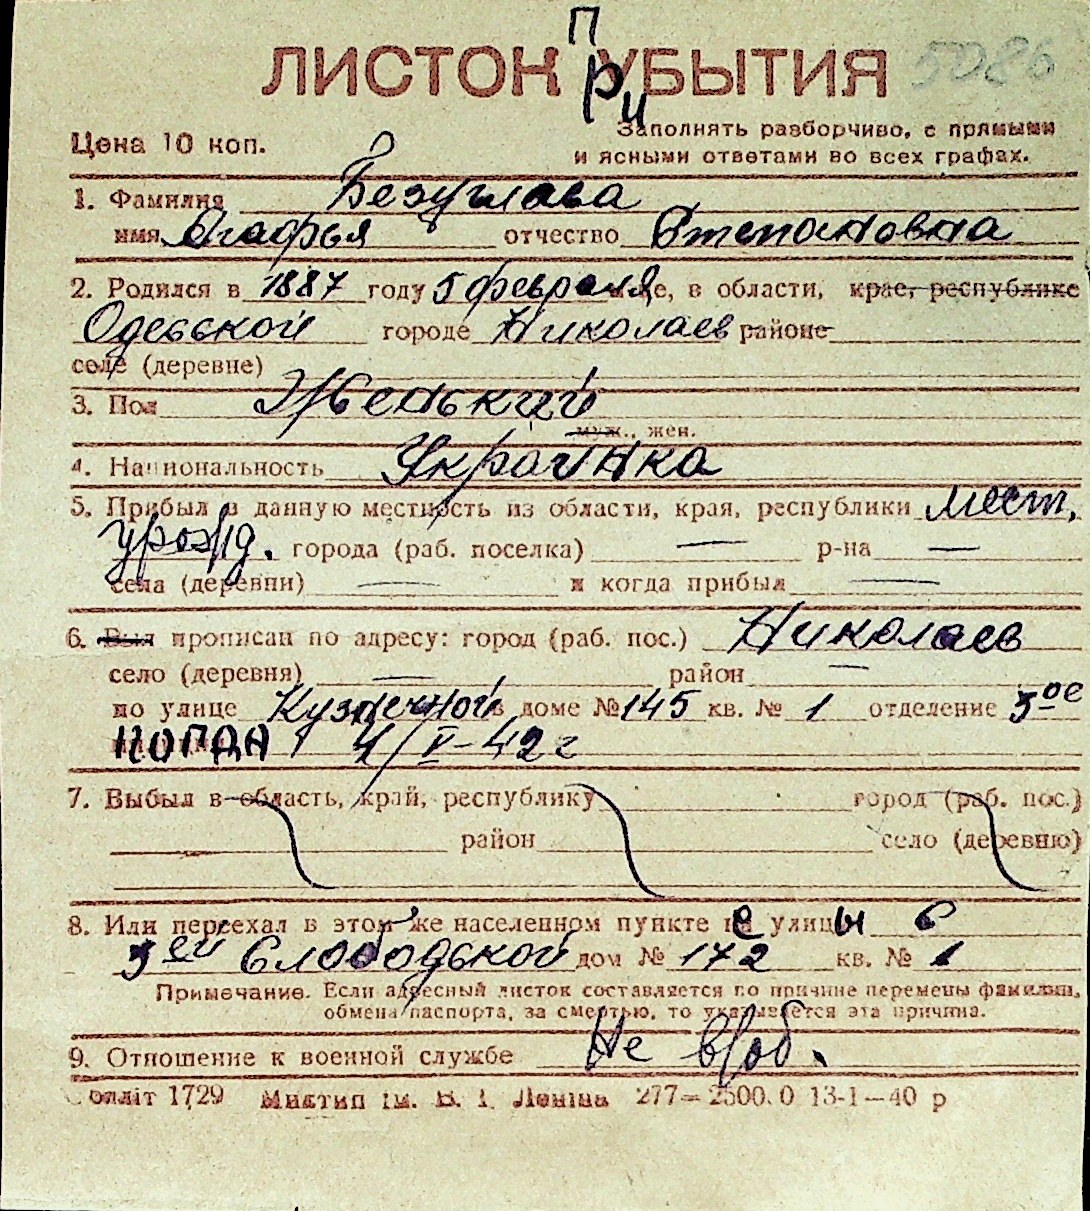 ЛИСТОК ПРИБЫТИЯ 5086
Цена 10 коп.
Заполнять разборчиво, с прямыми
и ясными ответами во всех графах.
1. Фамилия Безуглава
имя Агафья отчество Степановна
2. Родился в 1887 году 5 февраля м-це, в области, крае, республике
Одесской городе Николаев районе
селе (деревне)
3. Пол Женький
муж., жен.
4. Национальность Украинка
5. Прибыл в данную местность из области, края, республики мест.
урожд. города (раб. поселка) — р-на —
села (деревни) — и когда прибыл —
6. Был прописан по адресу: город (раб. пос.) Николаев
село (деревня) — район —
по улице Кузнечной в доме № 145 кв. № 1 отделение 3ое
когда 4/V-42 г
7. Выбыл в область, край, республику город (раб. пос.)
район село (деревню)
8. Или переехал в этом же населенном пункте не улицы С
3ей Слободской дом № 172 кв. № 1
Примечание. Если адресный листок составляется по причине перемены фамилии,
обмена паспорта, за смертью, то указывается эта причина.
9. Отношение к военной службе Не в/об.
Облліт 1729 Миктип ім. В. І. Леніна 277—2500.0 13-1—40 р